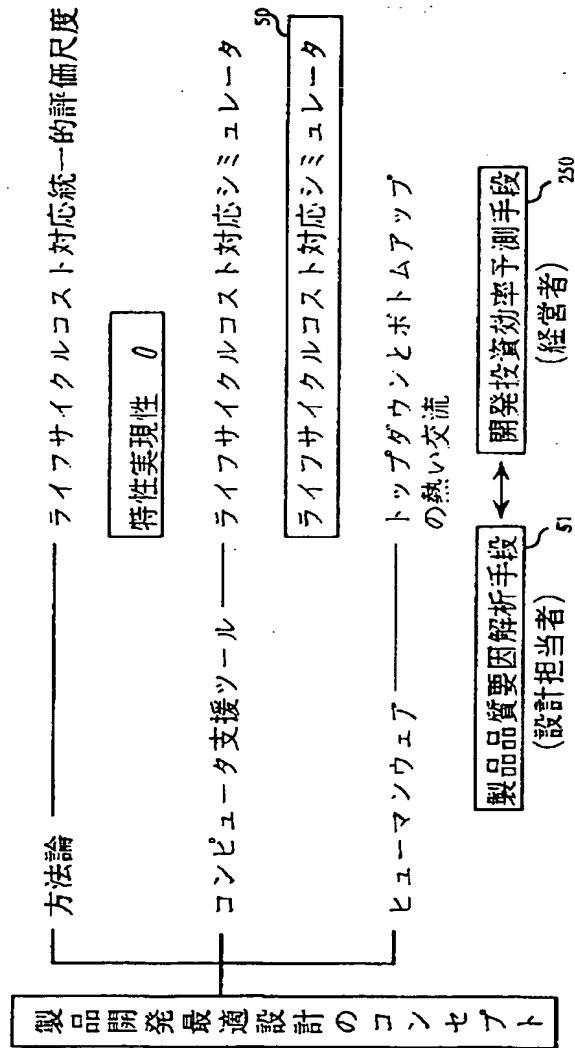 製品開発最適設計のコンセプト
方法論
ライフサイクルコスト対応統一的評価尺度
特性実現性
コンピュータ支援ツール
ライフサイクルコスト対応シミュレータ
ライフサイクルコスト対応シミュレータ
50
ヒューマンウェア
トップダウンとボトムアップ
の熱い交流
製品品質要因解析手段
51
(設計担当者)
開発投資効率予測手段
250
(経営者)